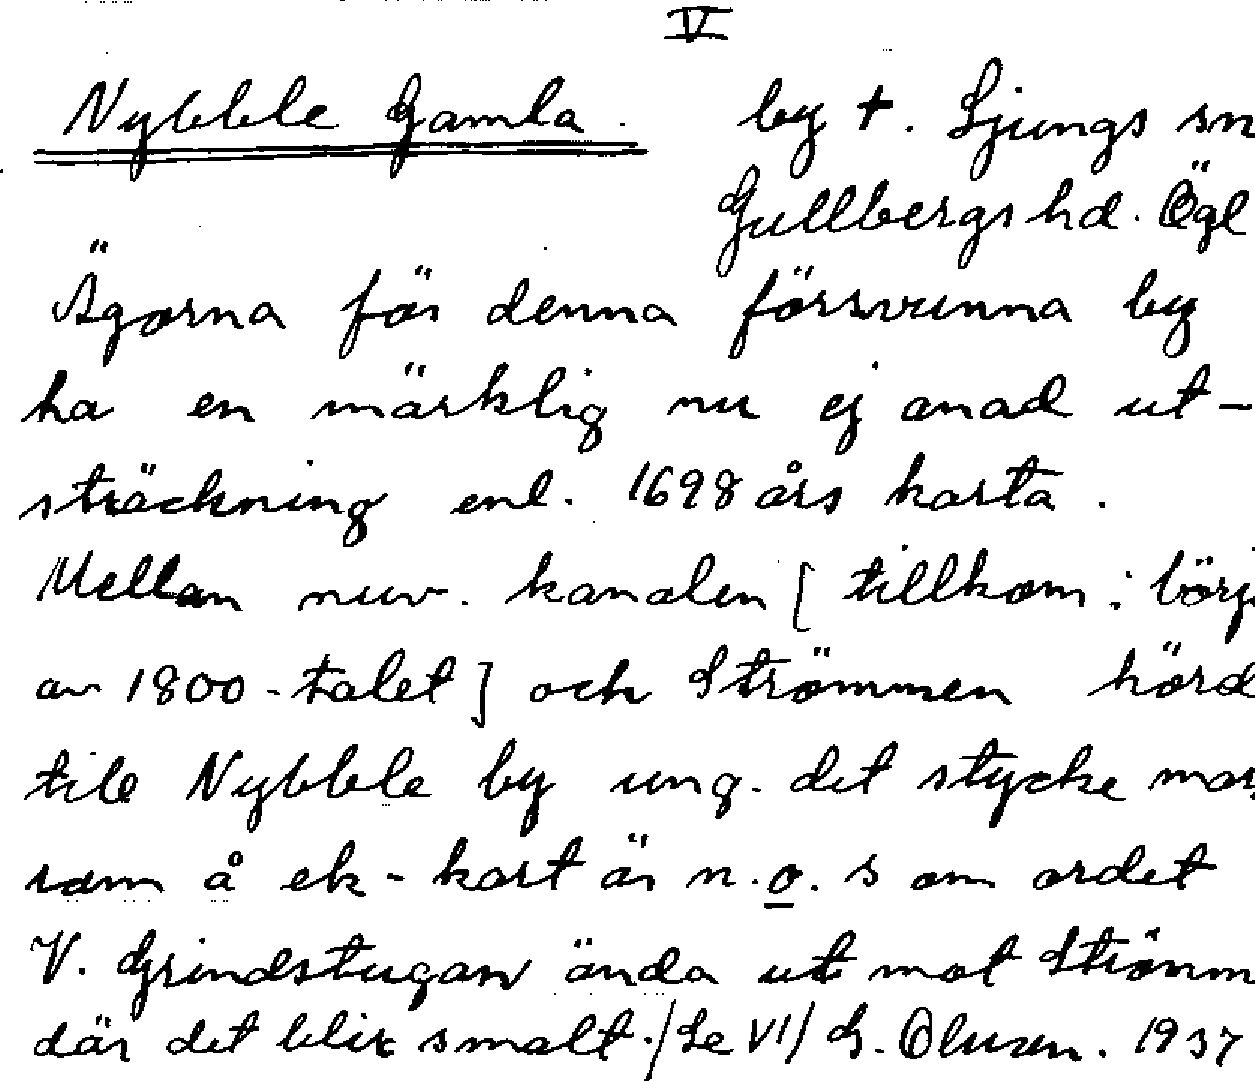 V
Nybble Gamla. by †. Ljungs sn
Gullbergs hd. Ögl
Ägorna för denna försvunna by
ha en märklig nu ej anad ut-
sträckning enl. 1698 års karta.
Mellan nuv. kanalen [tillkom i börj
av 1800-talet] och Strömmen hörd
till Nybble by ung. det stycke mar
som å ek-kart är n.o. s om ordet
V. Grindstugan ända ut mot Strömm
där det blir smalt./Se VI/ G. Olsson. 1937